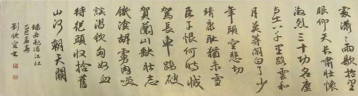 處瀟瀟雨歇抬望
眼仰天長嘯壯懷
激烈三十功名塵
與土八千里路雲和
月莫等閒白了少
年頭空悲切
靖康恥猶未雪
臣子恨何時滅
駕長車踏破
賀蘭山缺壯志
飢餐胡虜肉笑
談渴飲匈奴血
待從頭收拾舊
山河朝天闕
岳飛滿江紅